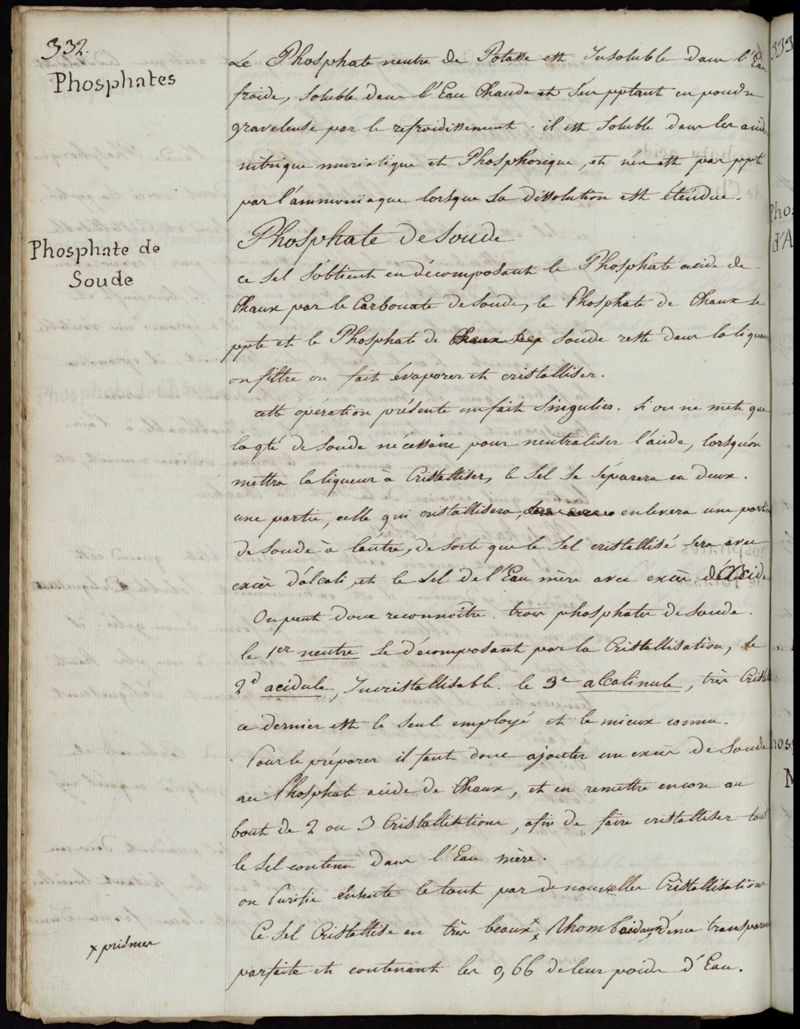 332.
Phosphates
Le Phosphate neutre de Potasse est Insoluble dans l'Eau
froide, soluble dans l'Eau Chaude et s'en pptant en poudre
graveleuse par le refroidissement. il est soluble dans les acid
nitrique muriatique et Phosphorique, et n'en est pas ppt
par l'ammoniaque lorsque sa dissolution est étendue.
Phosphate de Soude
Phosphate de
Soude
ce sel s'obtient en décomposant le Phosphate acide de
Chaux par le Carbonate de Soude, le Phosphate de Chaux se
ppte et le Phosphate de Soude reste dans la liqueur
on filtre on fait évaporer et cristalliser.
cette opération présente un fait Singulier. Si on ne met que
la qté de Soude nécessaire pour neutraliser l'acide, lorsqu'on
mettra la liqueur à Cristalliser, le Sel se séparera en deux.
une partie, celle qui cristallisera, enlevera une portion
de Soude à l'autre, de sorte que le Sel cristallisé sera avec
excès d'alcali, et le Sel de l'Eau mère avec excès d'Acide
On peut donc reconnoître trois phosphates de Soude.
le 1er neutre se décomposant par la Cristallisation, le
2d acidule, Incristallisable. le 3e alcalinule, très Crist
ce dernier est le seul employé et le mieux connu.
Pour le préparer il faut donc ajouter un excès de Soude
au Phosphate acide de Chaux, et en remettre encore au
bout de 2 ou 3 Cristallisations, afin de faire cristalliser tout
le sel contenu dans l'Eau mère.
on Purifie Ensuite le tout par de nouvelles Cristallisations
Ce Sel Cristallise en très beaux x Rhomboidaux d'une transparence
x prismes
parfaite et contenant les 0,66 de leur poids d'Eau.